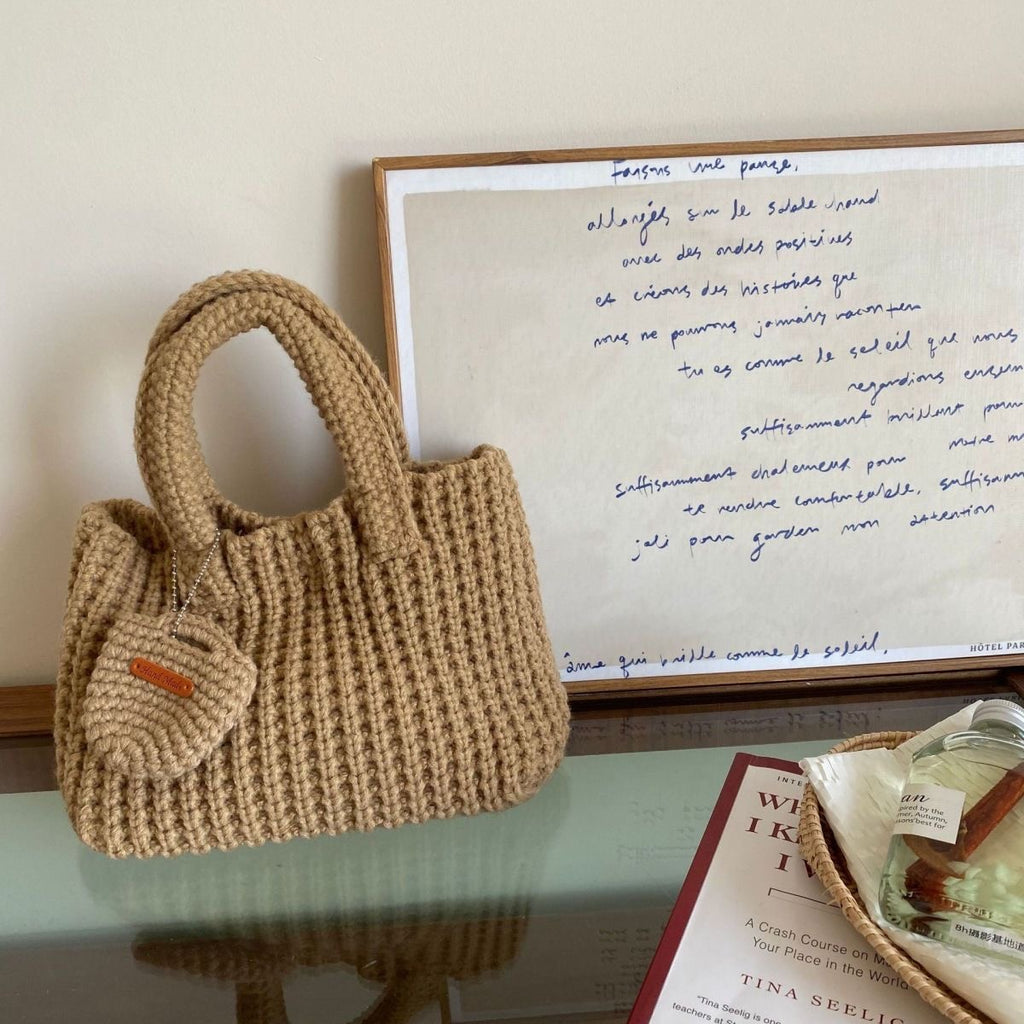 Faisons une pause,
allongés sur le sable chaud
avec des ondes positives
et créons des histoires que
nous ne pouvons jamais raconter
tu es comme le soleil que nous
regardions
suffisamment brillant pour
suffisamment chaleureux pour
te rendre comfortable, suffisam
joli pour garder mon attention
âme qui brille comme le soleil.
HÔTEL PAR
Hand Made
INTE
WH
I K
I W
A Crash Course on M
Your Place in the World
TINA SEELIG
"Tina Seelig is one
teachers at St
an
pired by the
mer, Autumn,
asons best for
8h摄影基地道